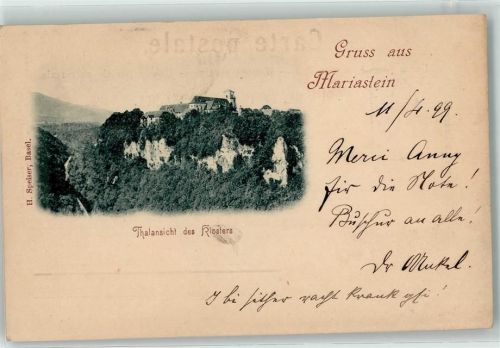 Carte postale.
Gruss aus
Mariastein
11/4.99.
Merci Anny
für die Note!
Buschur an alle!
Dr Unkel.
I bi sither racht krank gsi!
Thalansicht des Klosters
H. Speiser, Basel.